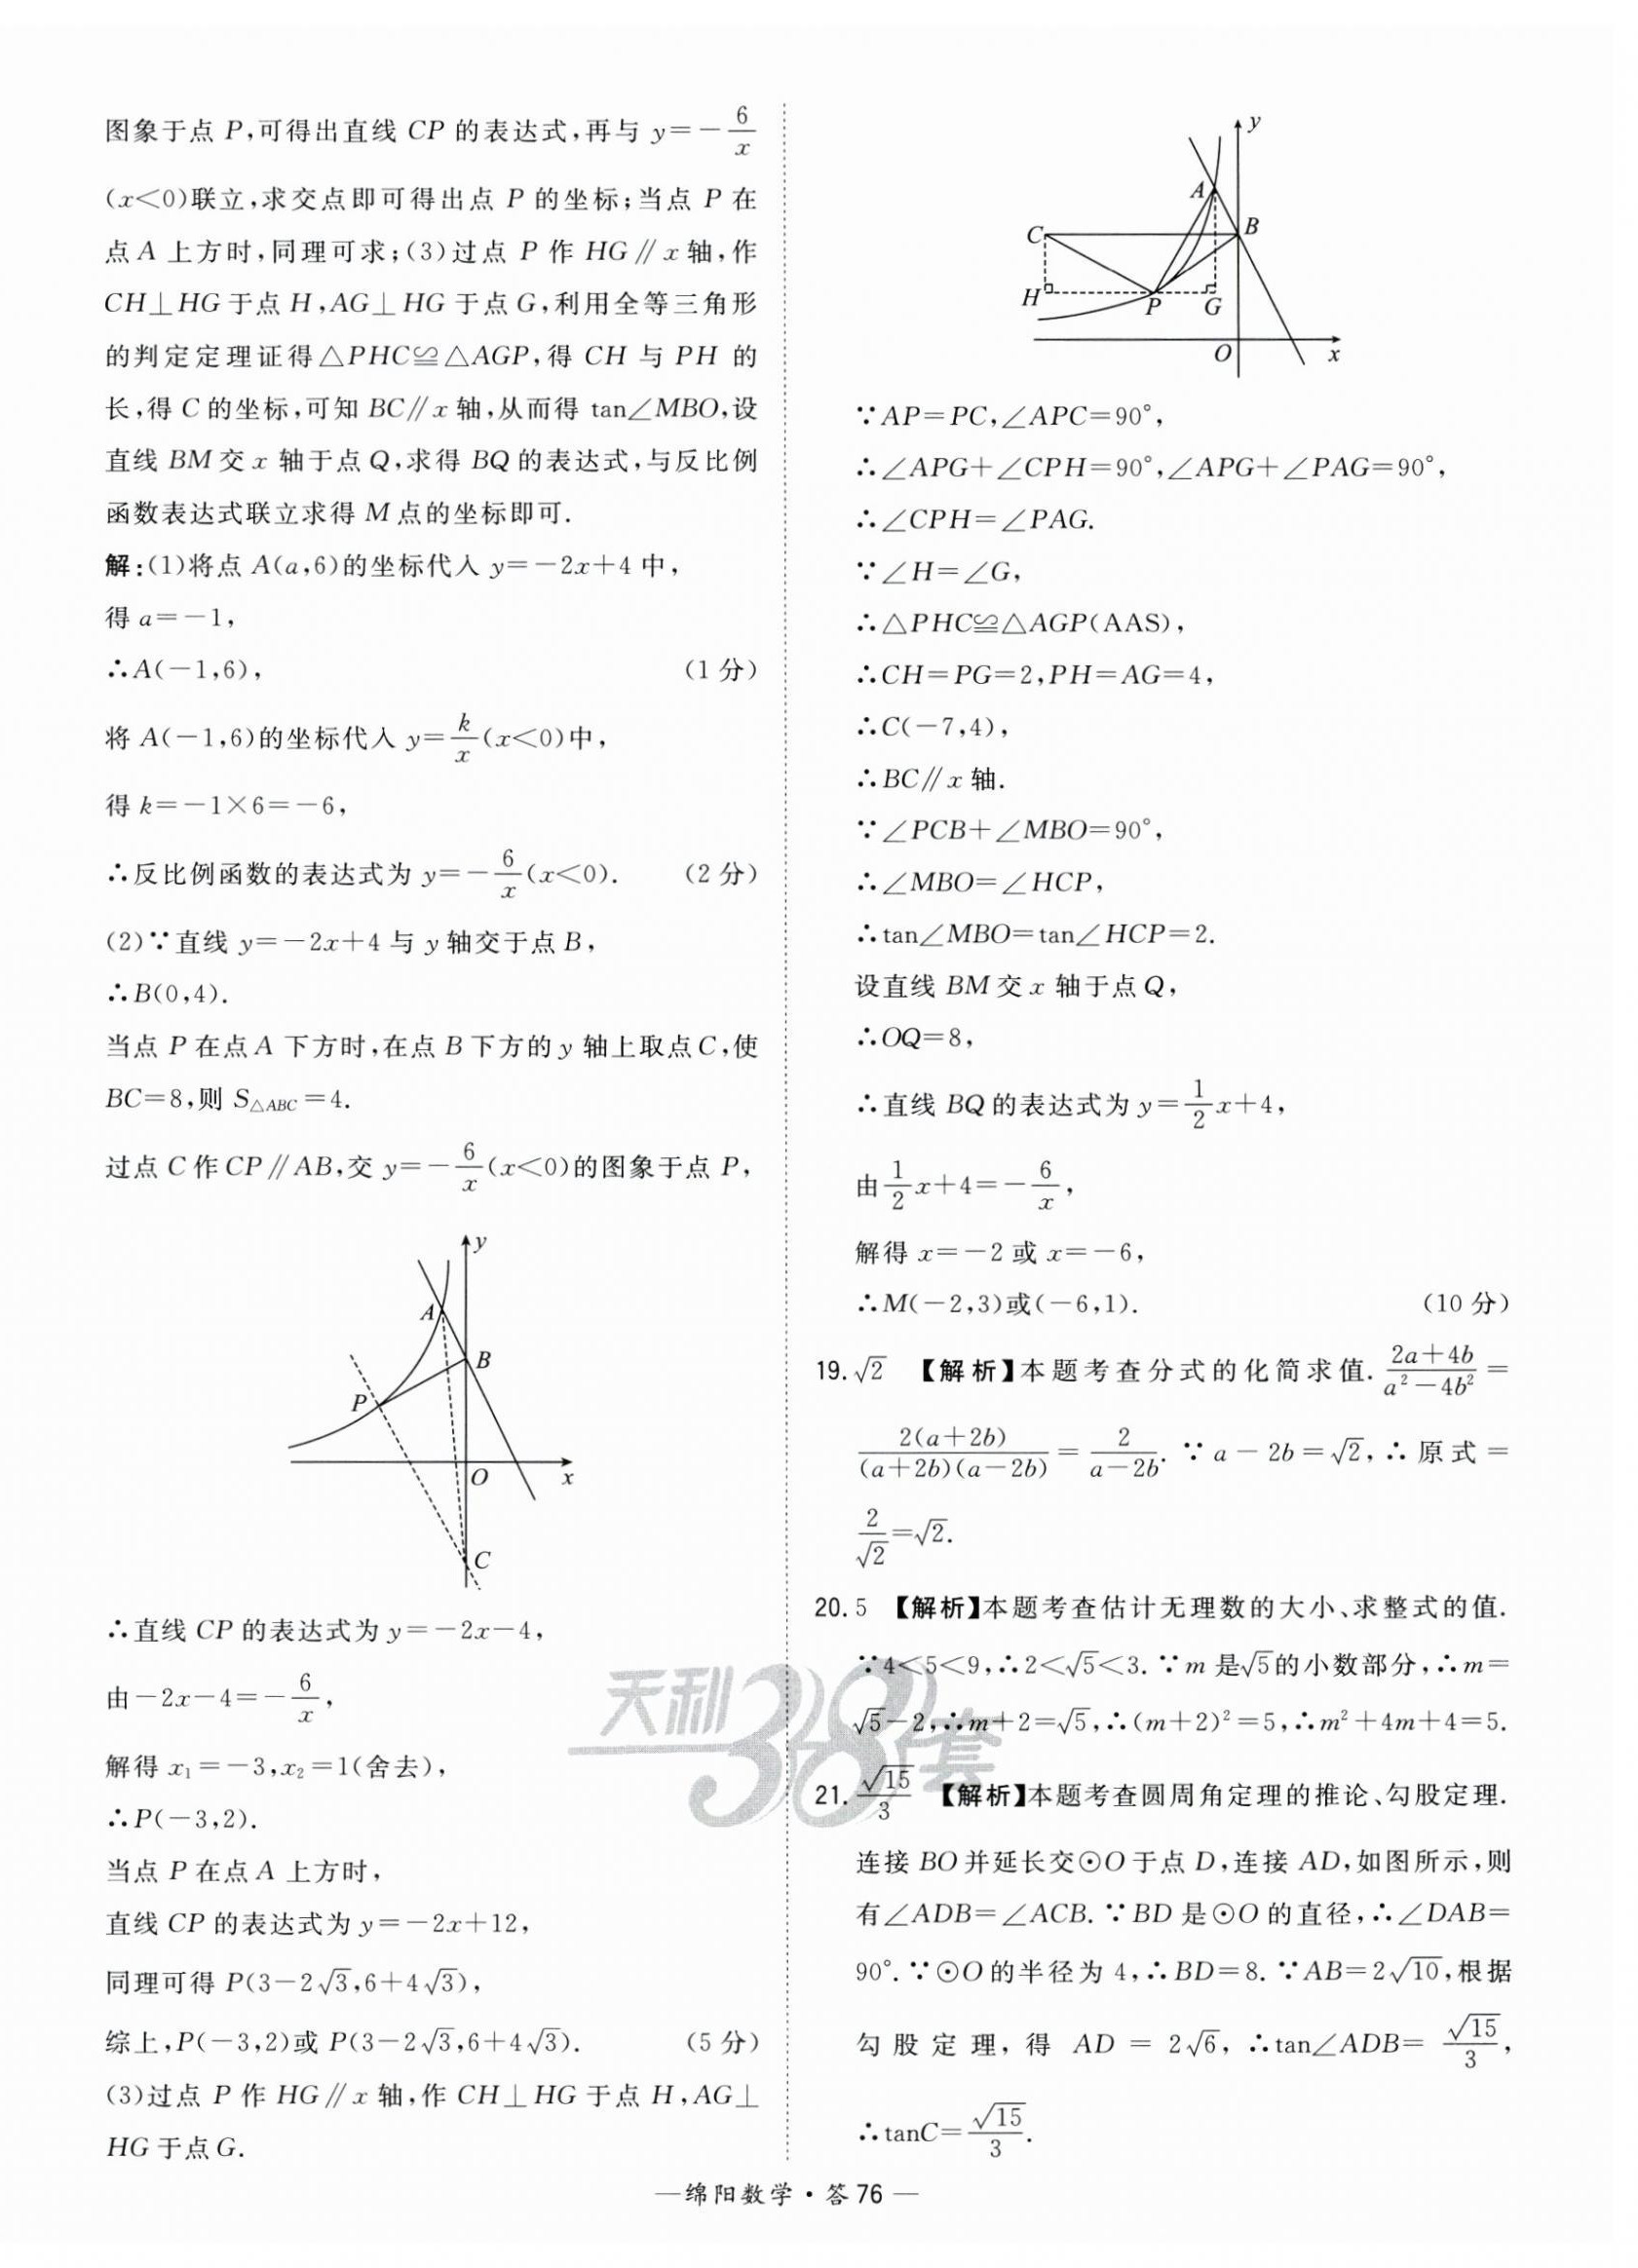 图象于点 P,可得出直线 CP 的表达式,再与 y=-6/x
(x<0)联立,求交点即可得出点 P 的坐标;当点 P 在
点 A 上方时,同理可求;(3)过点 P 作 HG∥x 轴,作
CH⊥HG 于点 H,AG⊥HG 于点 G,利用全等三角形
的判定定理证得△PHC≌△AGP,得 CH 与 PH 的
长,得 C 的坐标,可知 BC∥x 轴,从而得 tan∠MBO,设
直线 BM 交 x 轴于点 Q,求得 BQ 的表达式,与反比例
函数表达式联立求得 M 点的坐标即可.
解:(1)将点 A(a,6)的坐标代入 y=-2x+4 中,
得 a=-1,
∴A(-1,6), (1 分)
将 A(-1,6)的坐标代入 y=k/x(x<0)中,
得 k=-1×6=-6,
∴反比例函数的表达式为 y=-6/x(x<0). (2 分)
(2)∵直线 y=-2x+4 与 y 轴交于点 B,
∴B(0,4).
当点 P 在点 A 下方时,在点 B 下方的 y 轴上取点 C,使
BC=8,则 S△ABC=4.
过点 C 作 CP∥AB,交 y=-6/x(x<0)的图象于点 P,
y
A
B
P
O
x
C
∴直线 CP 的表达式为 y=-2x-4,
由-2x-4=-6/x,
解得 x₁=-3,x₂=1(舍去),
∴P(-3,2).
当点 P 在点 A 上方时,
直线 CP 的表达式为 y=-2x+12,
同理可得 P(3-2√3,6+4√3),
综上,P(-3,2)或 P(3-2√3,6+4√3). (5 分)
(3)过点 P 作 HG∥x 轴,作 CH⊥HG 于点 H,AG⊥
HG 于点 G.
y
A
C
B
H
P
G
O
x
∵AP=PC,∠APC=90°,
∴∠APG+∠CPH=90°,∠APG+∠PAG=90°,
∴∠CPH=∠PAG.
∵∠H=∠G,
∴△PHC≌△AGP(AAS),
∴CH=PG=2,PH=AG=4,
∴C(-7,4),
∴BC∥x 轴.
∵∠PCB+∠MBO=90°,
∴∠MBO=∠HCP,
∴tan∠MBO=tan∠HCP=2.
设直线 BM 交 x 轴于点 Q,
∴OQ=8,
∴直线 BQ 的表达式为 y=1/2x+4,
由1/2x+4=-6/x,
解得 x=-2 或 x=-6,
∴M(-2,3)或(-6,1). (10 分)
19.√2 【解析】本题考查分式的化简求值.(2a+4b)/(a²-4b²)=
2(a+2b)/((a+2b)(a-2b))=2/(a-2b).∵a-2b=√2,∴原式=
2/√2=√2.
20.5 【解析】本题考查估计无理数的大小、求整式的值.
∵4<5<9,∴2<√5<3.∵m 是√5的小数部分,∴m=
√5-2,∴m+2=√5,∴(m+2)²=5,∴m²+4m+4=5.
21.√15/3 【解析】本题考查圆周角定理的推论、勾股定理.
连接 BO 并延长交⊙O 于点 D,连接 AD,如图所示,则
有∠ADB=∠ACB.∵BD 是⊙O 的直径,∴∠DAB=
90°.∵⊙O 的半径为 4,∴BD=8.∵AB=2√10,根据
勾股定理,得 AD=2√6,∴tan∠ADB=√15/3,
∴tanC=√15/3.
天利38套
—绵阳数学·答76—